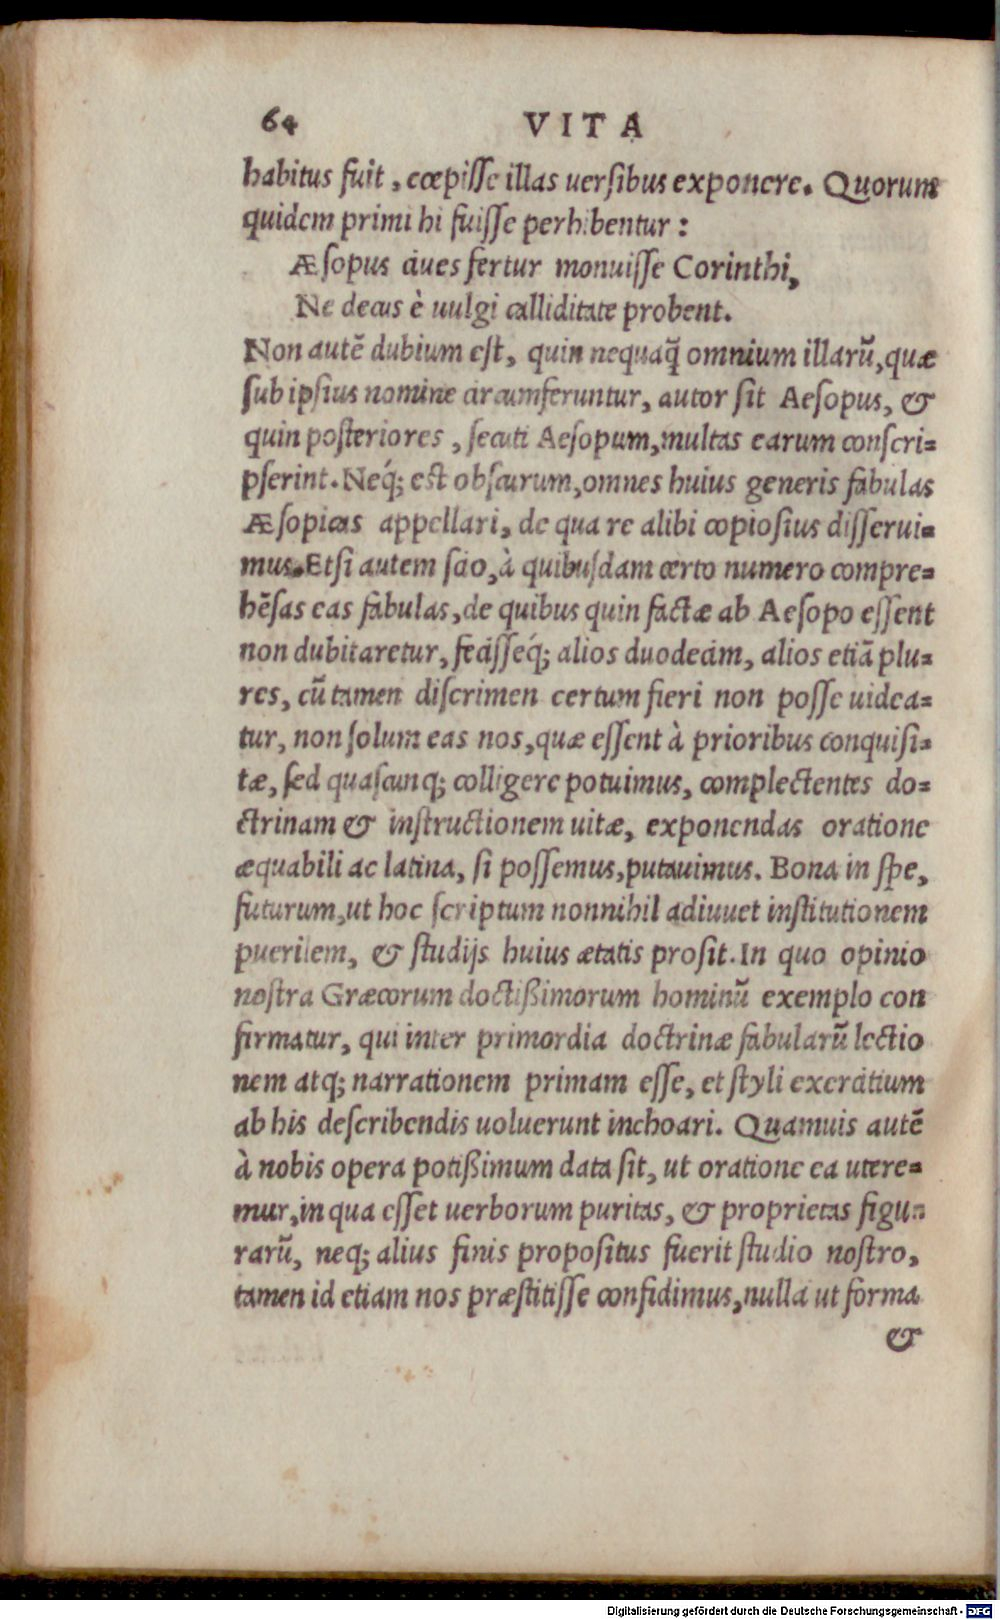 64 VITA
habitus fuit, cœpisse illas uersibus exponere. Quorum
quidem primi hi fuisse perhibentur:
Æsopus ciues fertur monuisse Corinthi,
Ne decus è uulgi calliditate probent.
Non autē dubium est, quin nequaq̃ omnium illarũ, quæ
sub ipsius nomine circumferuntur, autor sit Aesopus, &
quin posteriores, secuti Aesopum, multas earum conscri-
pserint. Neq́; est obscurum, omnes huius generis fabulas
Æsopicas appellari, de qua re alibi copiosius disserui-
mus. Etsi autem scio, à quibusdam certo numero compre-
hēsas eas fabulas, de quibus quin factæ ab Aesopo essent
non dubitaretur, fecisseq́; alios duodecim, alios etiā plu-
res, cũ tamen discrimen certum fieri non posse uidea-
tur, non solum eas nos, quæ essent à prioribus conquisi-
tæ, sed quascunq; colligere potuimus, complectentes do-
ctrinam & instructionem uitæ, exponendas oratione
æquabili ac latina, si possemus, putauimus. Bona in spe,
futurum, ut hoc scriptum nonnihil adiuuet institutionem
puerilem, & studijs huius ætatis prosit. In quo opinio
nostra Græcorum doctißimorum hominũ exemplo con
firmatur, qui inter primordia doctrinæ fabularũ lectio
nem atq; narrationem primam esse, et styli exercitium
ab his describendis uoluerunt inchoari. Quamuis autē
à nobis opera potißimum data sit, ut oratione ea utere-
mur, in qua esset uerborum puritas, & proprietas figu-
rarũ, neq; alius finis propositus fuerit studio nostro,
tamen id etiam nos præstitisse confidimus, nulla ut forma
&
Digitalisierung gefördert durch die Deutsche Forschungsgemeinschaft - DFG